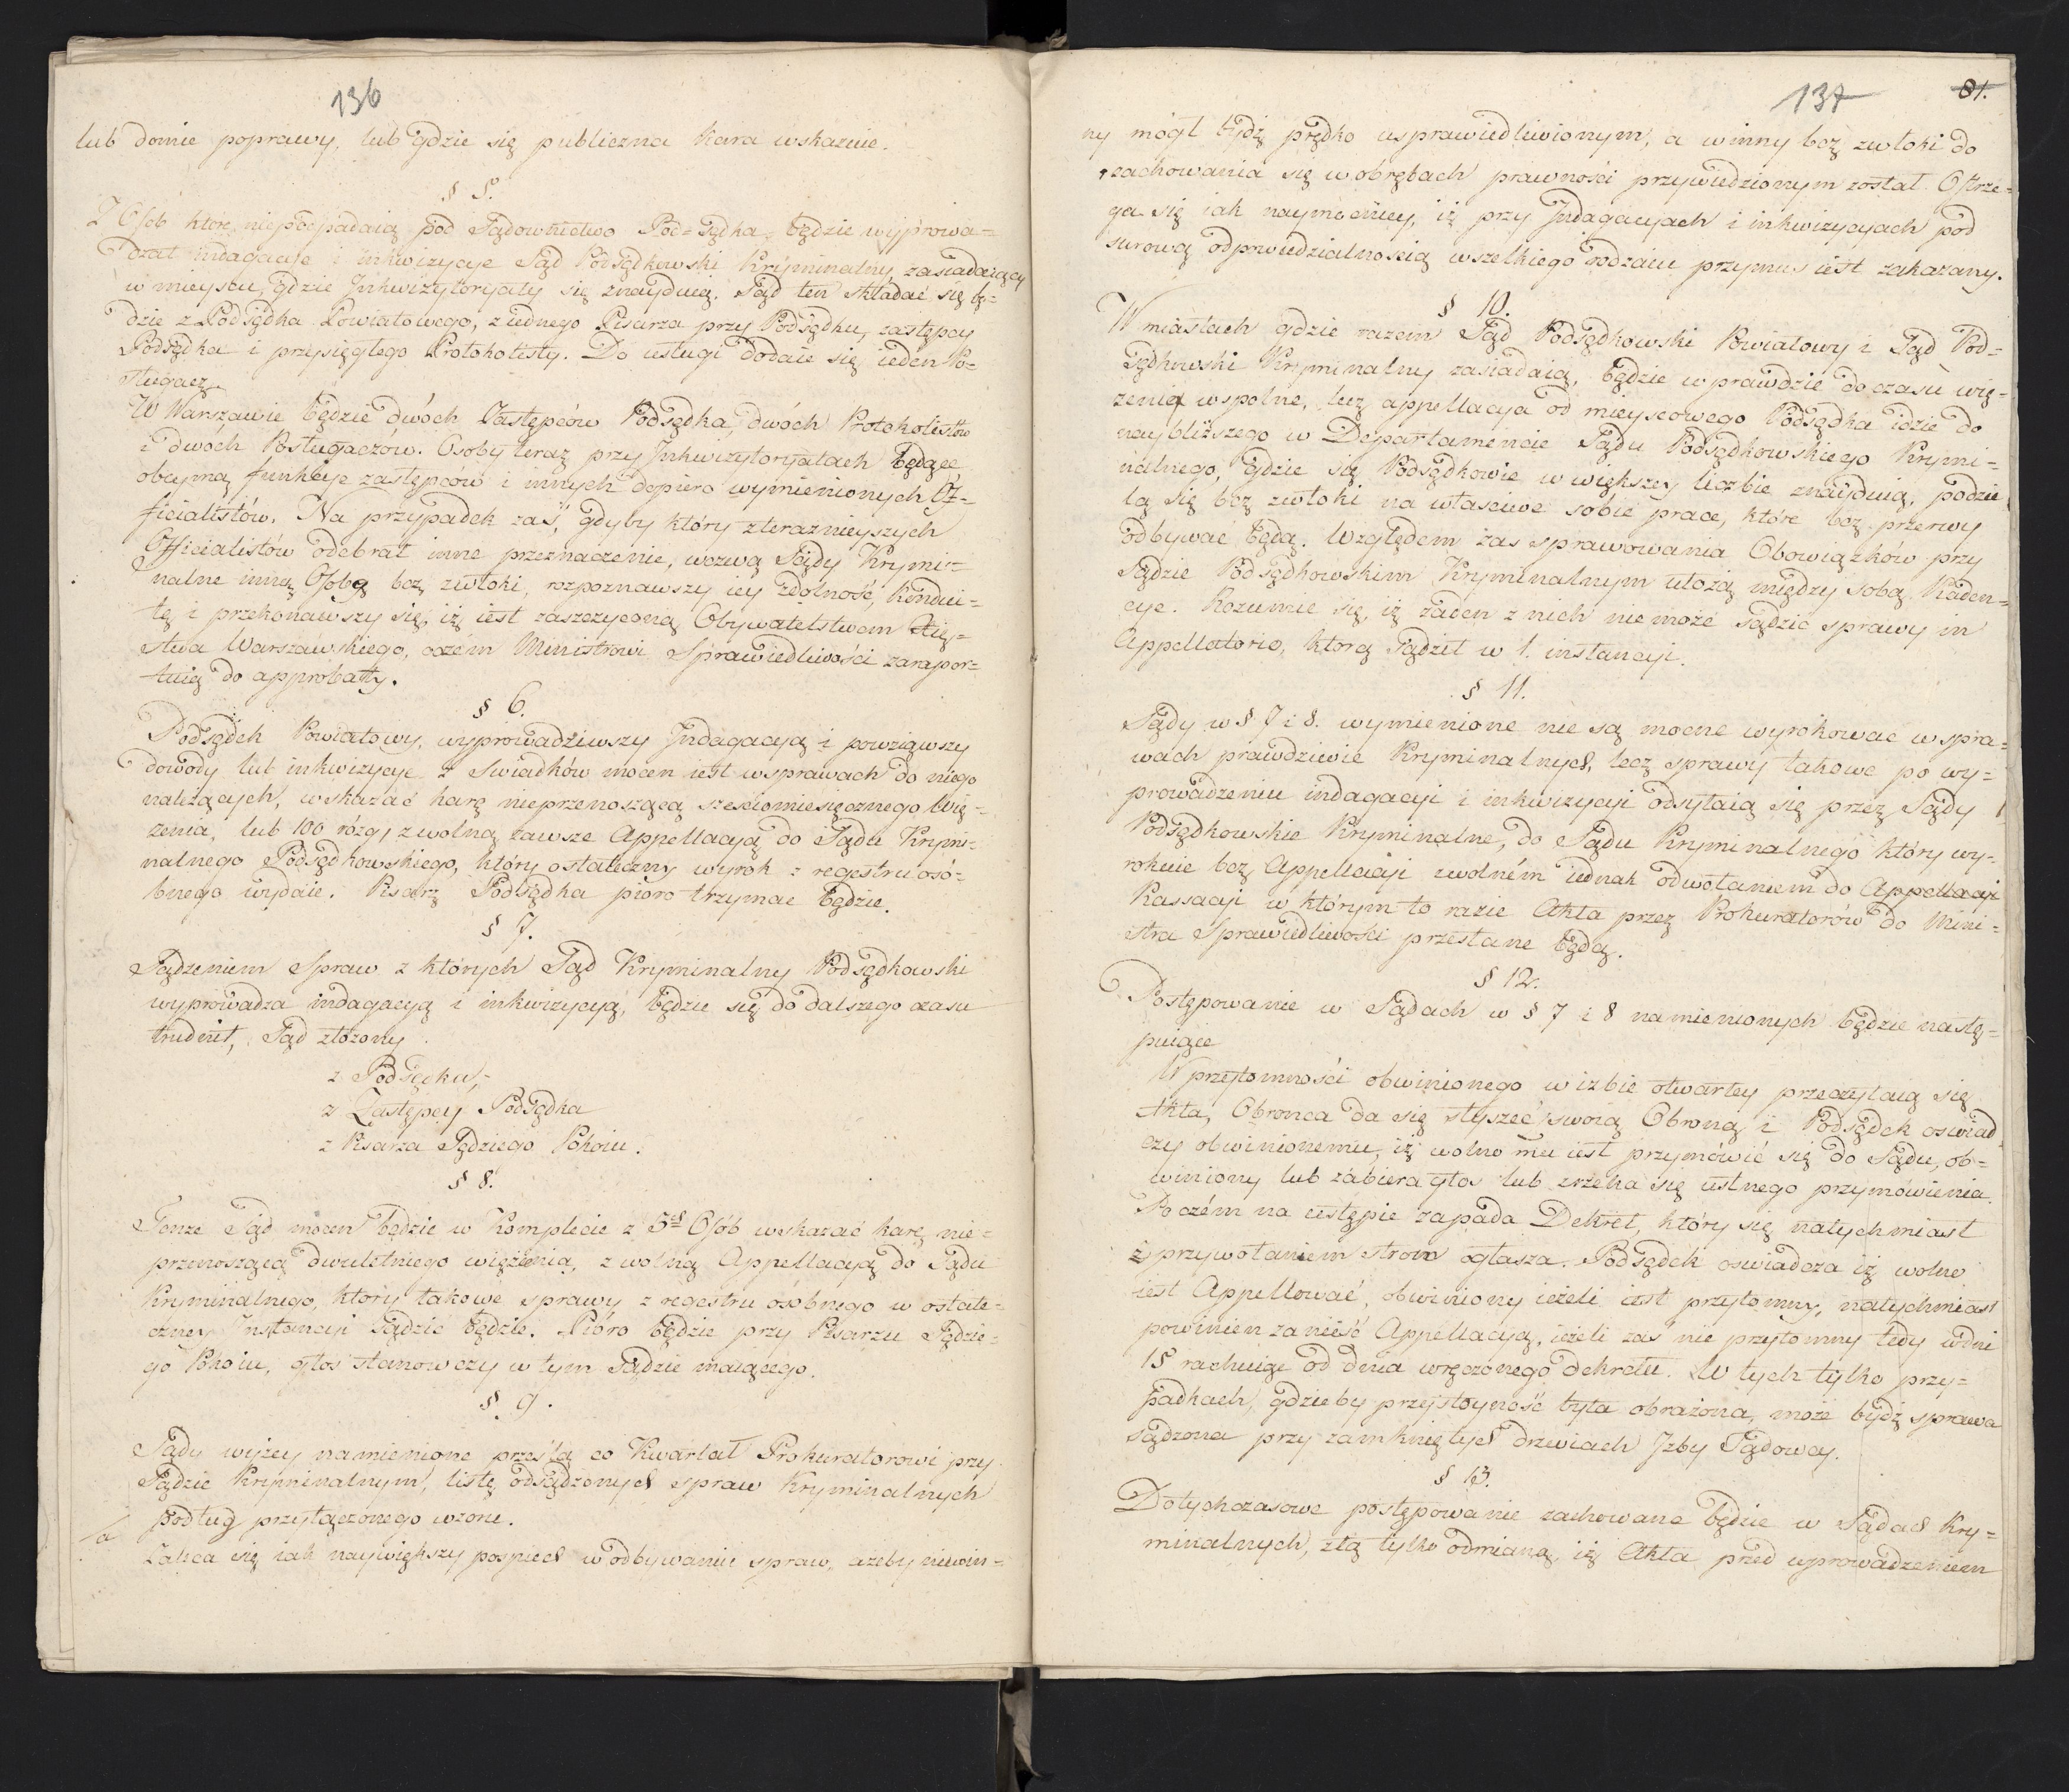 136
lub domie poprawy, lub gdzie się publiczna kara wskazuie.
§ 5.
Z Osób które niepodpadaią pod Sądownictwo Pod=Sędka, będzie wyprowa=
dzał indagacje i inkwizycye Sąd Podsędkowski Kryminalny, zasiadaiący
w mieyscu, gdzie Inkwizytoryaty się znayduią. Sąd ten składać się bę=
dzie z Podsędka Powiatowego, z iednego Pisarza przy Podsędku, zastępcy
Podsędka i przysięgłego Protokolisty. Do usługi dodaie się ieden Po=
sługacz.
W Warszawie będzie dwóch Zastępców Podsędka, dwóch Protokolistów
i dwóch Posługaczów. Osoby teraz przy Inkwizytoryatach będące
obeymą funkcye zastępców i innych dopiero wymienionych Of=
ficialistów. Na przypadek zaś, gdyby który z teraznieyszych
Officialistów odebrał inne przeznaczenie, wezwą Sądy Krymi=
nalne inną Osobę bez zwłoki, rozpoznawszy iey zdolność, kondui=
tę i przekonawszy się, iż iest zaszczyconą Obywatelstwem Xię=
stwa Warszawskiego, oczém Ministrowi Sprawiedliwości zarapor=
tuią do approbaty.
§ 6.
Podsędek Powiatowy, wyprowadziwszy Indagacyą i powziąwszy
dowody lub inkwizycye z świadków mocen iest w sprawach do niego
należących, wskazać karę nieprzenoszącą sześciomiesięcznego wię=
zenia, lub 100 rózg, z wolną zawsze Appellacyą do Sądu Krymi=
nalnego Podsędkowskiego, który ostateczny wyrok z regestru osó=
bnego wydaie. Pisarz Podsędka pioro trzymac będzie.
§ 7.
Sądzeniem Spraw z których Sąd Kryminalny Podsędkowski
wyprowadza indagacyą i inkwizycyą, będzie się do dalszego czasu
trudnił, Sąd złożony
z Podsędka,
z Zastępcy Podsędka
z Pisarza Sędziego Pokoiu.
§ 8.
Tenze Sąd mocen będzie w Komplecie z 3ch Osób wskazać karę nie=
przenoszącą dwuletniego więzienia, z wolną Appellacyą do Sądu
Kryminalnego, który takowe sprawy z regestru osóbnego w ostate=
czney Instancyi sądzić będzie. Pióro będzie przy Pisarzu Sędzie=
go Pokoiu, głos stanowczy w tym Sądzie maiącego.
§ 9.
Sądy wyżey namienione prześlą co Kwartał Prokuratorowi przy
Sądzie Kryminalnym, listę odsądzonych spraw Kryminalnych
/a podług przyłączonego wzoru.
Zaleca się iak naywiększy pospiech w odbywaniu spraw, ażeby niewin=
137 81.
ny mógł bydź prędko usprawiedliwionym, a winny bez zwłoki do
zachowania się w obrębach prawności przywiedzionym został. Ostrze=
ga się iak naymocniey, iż przy Indagacyach i inkwizycyach pod
surową odpowiedzialnością wszelkiego rodzaiu przymus iest zakazany.
§ 10.
W miastach gdzie razem Sąd Podsędkowski Powiatowy i Sąd Pod=
sędkowski Kryminalny zasiadaią, będzie wprawdzie do czasu wię=
zenie wspolne, lecz appellacya od mieyscowego Podsędka idzie do
naybliższego w Departamencie Sądu Podsędkowskiego Krymi=
nalnego, gdzie się Podsędkowie w większey liczbie znayduią, podzie
lą się bez zwłoki na właściwe sobie prace, które bez przerwy
odbywać będą. Względem zas sprawowania Obowiązków przy
Sądzie Podsędkowskim Kryminalnym ułożą między sobą Kaden=
cye. Rozumie się, iż żaden z nich nie może sądzić sprawy in
Appellatorio, którą sądził w 1. instancyi.
§ 11.
Sądy w § 7 i 8. wymienione nie są mocne wyrokować w spra=
wach prawdziwie Kryminalnych, lecz sprawy takowe po wy=
prowadzeniu indagacyi i inkwizycyi odsyłaią się przez Sądy
Podsędkowskie Kryminalne, do Sądu Kryminalnego który wy=
rokuie bez Appellacyi z wolném iednak odwołaniem do Appellacyi
Kassacyi w którym to razie Akta przez Prokuratorów do Mini=
stra Sprawiedliwości przesłane będą.
§ 12.
Postępowanie w Sądach w § 7 i 8 namienionych będzie nastę=
puiące
W przytomności obwinionego w izbie otwartey przeczytaią się
Akta, Obronca da się słyszeć z swoią Obroną i Podsędek oswiad
czy obwinionemu, iż wolno mu iest przymówić się do Sądu, ob=
winiony lub zábiera głos lub zrzeka się ustnego przymówienia.
Po czém na ustępie zapada Dekret, który się natychmiast
z przywołaniem stron ogłasza. Podsędek oswiadcza iż wolno
iest Appellować, obwiniony ieżeli iest przytomny, natychmiast
powinien zanieść Appellacyą, ieżeli zas nie przytomny tedy w dni
15 rachuiąc od dnia wręczonego dekretu. W tych tylko przy=
padkach, gdzieby przystoyność była obrażona, może bydź sprawa
sądzona przy zamkniętych drzwiach Izby Sądowey.
§ 13.
Dotychczasowe postępowanie zachowane będzie w Sądach Kry=
minalnych, z tą tylko odmianą, iż Akta przed wprowadzeniem